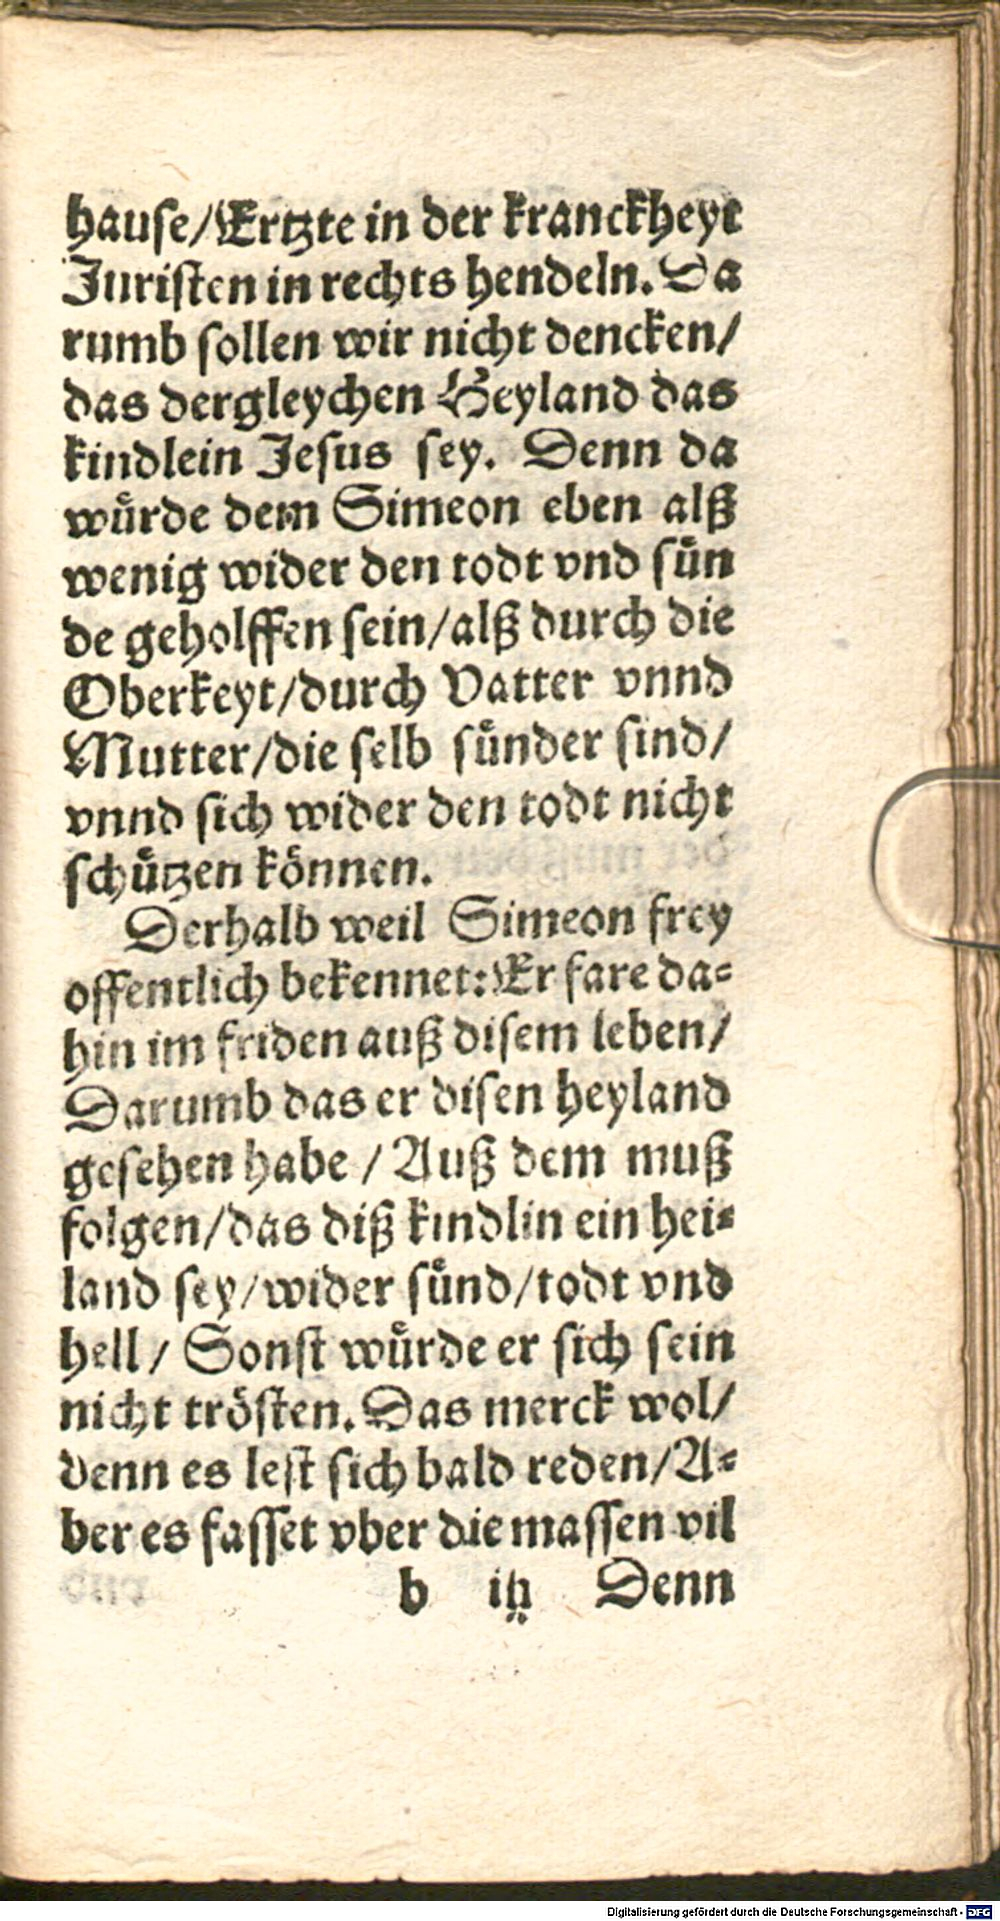 hauſe/Ertzte in der kranckheyt
Juriſten in rechts hendeln. Da
rumb ſollen wir nicht dencken/
das dergleychen Heyland das
kindlein Jeſus ſey. Denn da
wuͤrde dem Simeon eben alß
wenig wider den todt vnd ſuͤn
de geholffen ſein/alß durch die
Oberkeyt/durch Vatter vnnd
Mutter/die ſelb ſuͤnder ſind/
vnnd ſich wider den todt nicht
ſchuͤtzen koͤnnen.
Derhalb weil Simeon frey
offentlich bekennet: Er fare da⸗
hin im friden auß diſem leben/
Darumb das er diſen heyland
geſehen habe / Auß dem muß
folgen/das diß kindlin ein hei⸗
land ſey/wider ſuͤnd/todt vnd
hell/ Sonſt wuͤrde er ſich ſein
nicht troͤſten. Das merck wol/
denn es leſt ſich bald reden/A⸗
ber es faſſet vber die maſſen vil
b iij Denn
Digitalisierung gefördert durch die Deutsche Forschungsgemeinschaft - DFG